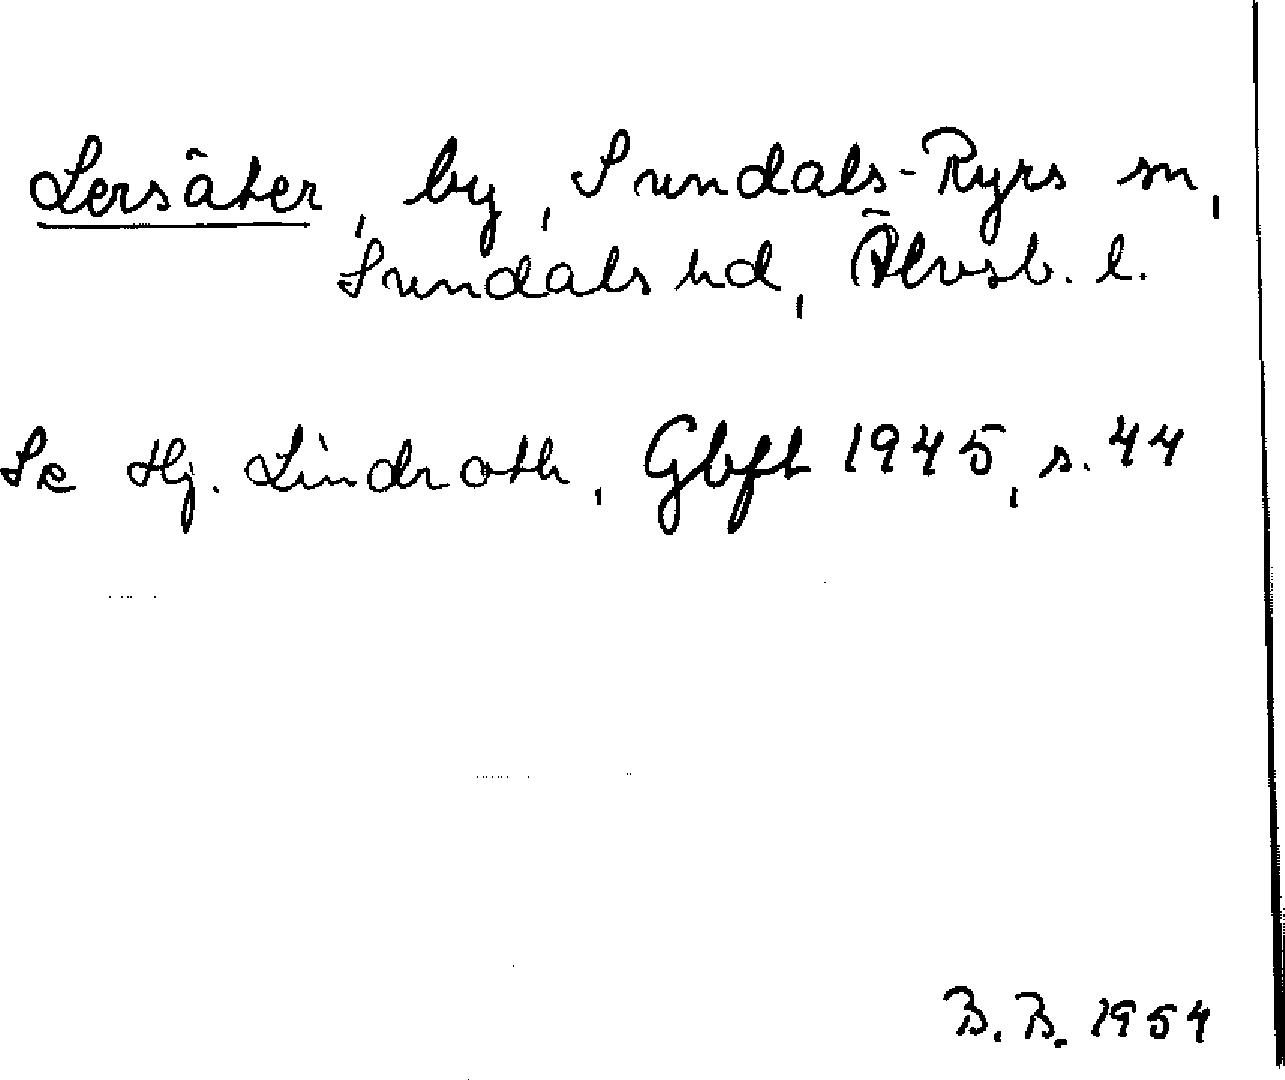 Lersäter, by, Sundals-Ryrs sn,
Sundals hd, Älvsb. l.
Se Hj. Lindroth, Gbft 1945, s. 44
B. B. 1954